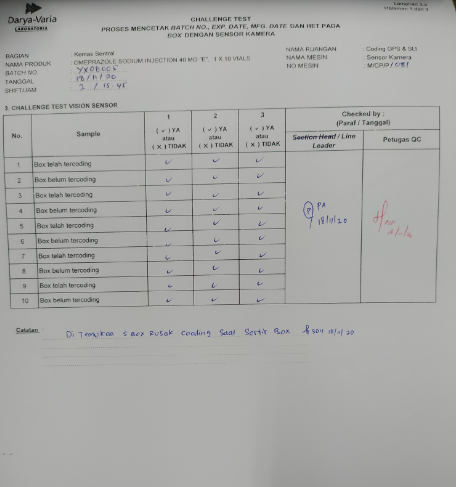 Lampiran 3.a
Halaman 3 dari 3
Darya-Varia
LABORATORIA
CHALLENGE TEST
PROSES MENCETAK BATCH NO., EXP. DATE, MFG. DATE DAN HET PADA
BOX DENGAN SENSOR KAMERA
BAGIAN : Kemas Sentral
NAMA PRODUK : OMEPRAZOLE SODIUM INJECTION 40 MG "E", 1 X 10 VIALS
BATCH NO
TANGGAL : 18/11/20
SHIFT/JAM : 2 / 15.45
NAMA RUANGAN : Coding GPS & SLI
NAMA MESIN : Sensor Kamera
NO MESIN
3. CHALLENGE TEST VISION SENSOR
No. Sample 1 2 3 Checked by : (Paraf / Tanggal)
( ✓ ) YA atau ( X ) TIDAK ( ✓ ) YA atau ( X ) TIDAK ( ✓ ) YA atau ( X ) TIDAK Section Head / Line Leader Petugas QC
1 Box telah tercoding ✓ ✓ ✓
2 Box belum tercoding ✓ ✓ ✓
3 Box telah tercoding ✓ ✓ ✓
4 Box belum tercoding ✓ ✓ ✓
5 Box telah tercoding ✓ ✓ ✓
6 Box belum tercoding ✓ ✓ ✓
7 Box telah tercoding ✓ ✓ ✓
8 Box belum tercoding ✓ ✓ ✓
9 Box telah tercoding ✓ ✓ ✓
10 Box belum tercoding ✓ ✓ ✓
PA
18/11/20
Catatan : Di Temukan 5 Box Rusak Coading Saat Sortir Box 18/11/20